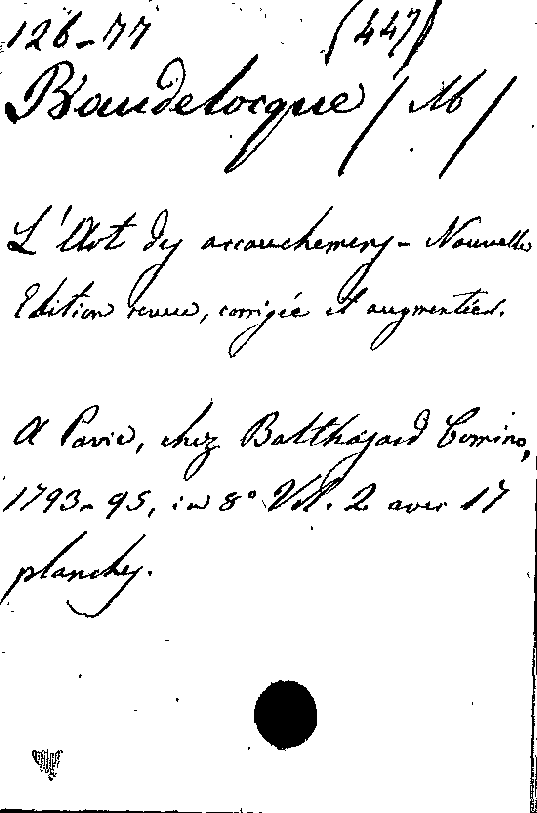 126-77 (447)
Baudelocque / M /
L'Art des accouchemens - Nouvelle
Edition revue, corrigée et augmentées.
A Pavie, chez Balthasard Comino,
1793-95, in 8° Vol. 2 avec 17
planches.